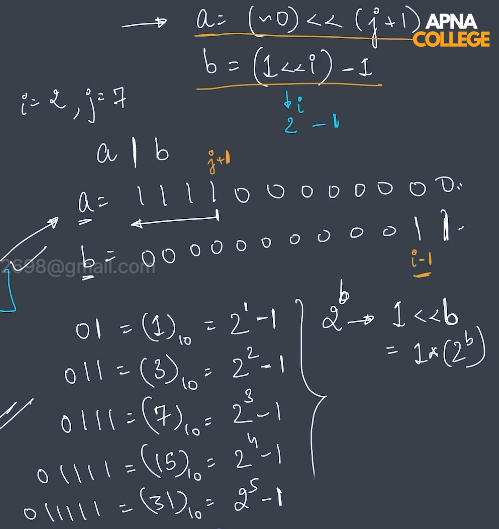 → a = (~0) << (j+1)
APNA
COLLEGE
b = (1<<i) - 1
i=2, j=7
↓ i
2 - 1
a | b
j+1
a = 1 1 1 1 0 0 0 0 0 0 0 0.
b = 0 0 0 0 0 0 0 0 0 0 1 1.
2698@gmail.com
i-1
01 = (1)₁₀ = 2¹-1
011 = (3)₁₀ = 2²-1
0111 = (7)₁₀ = 2³-1
01111 = (15)₁₀ = 2⁴-1
011111 = (31)₁₀ = 2⁵-1
2ᵇ → 1<<b
= 1*(2ᵇ)